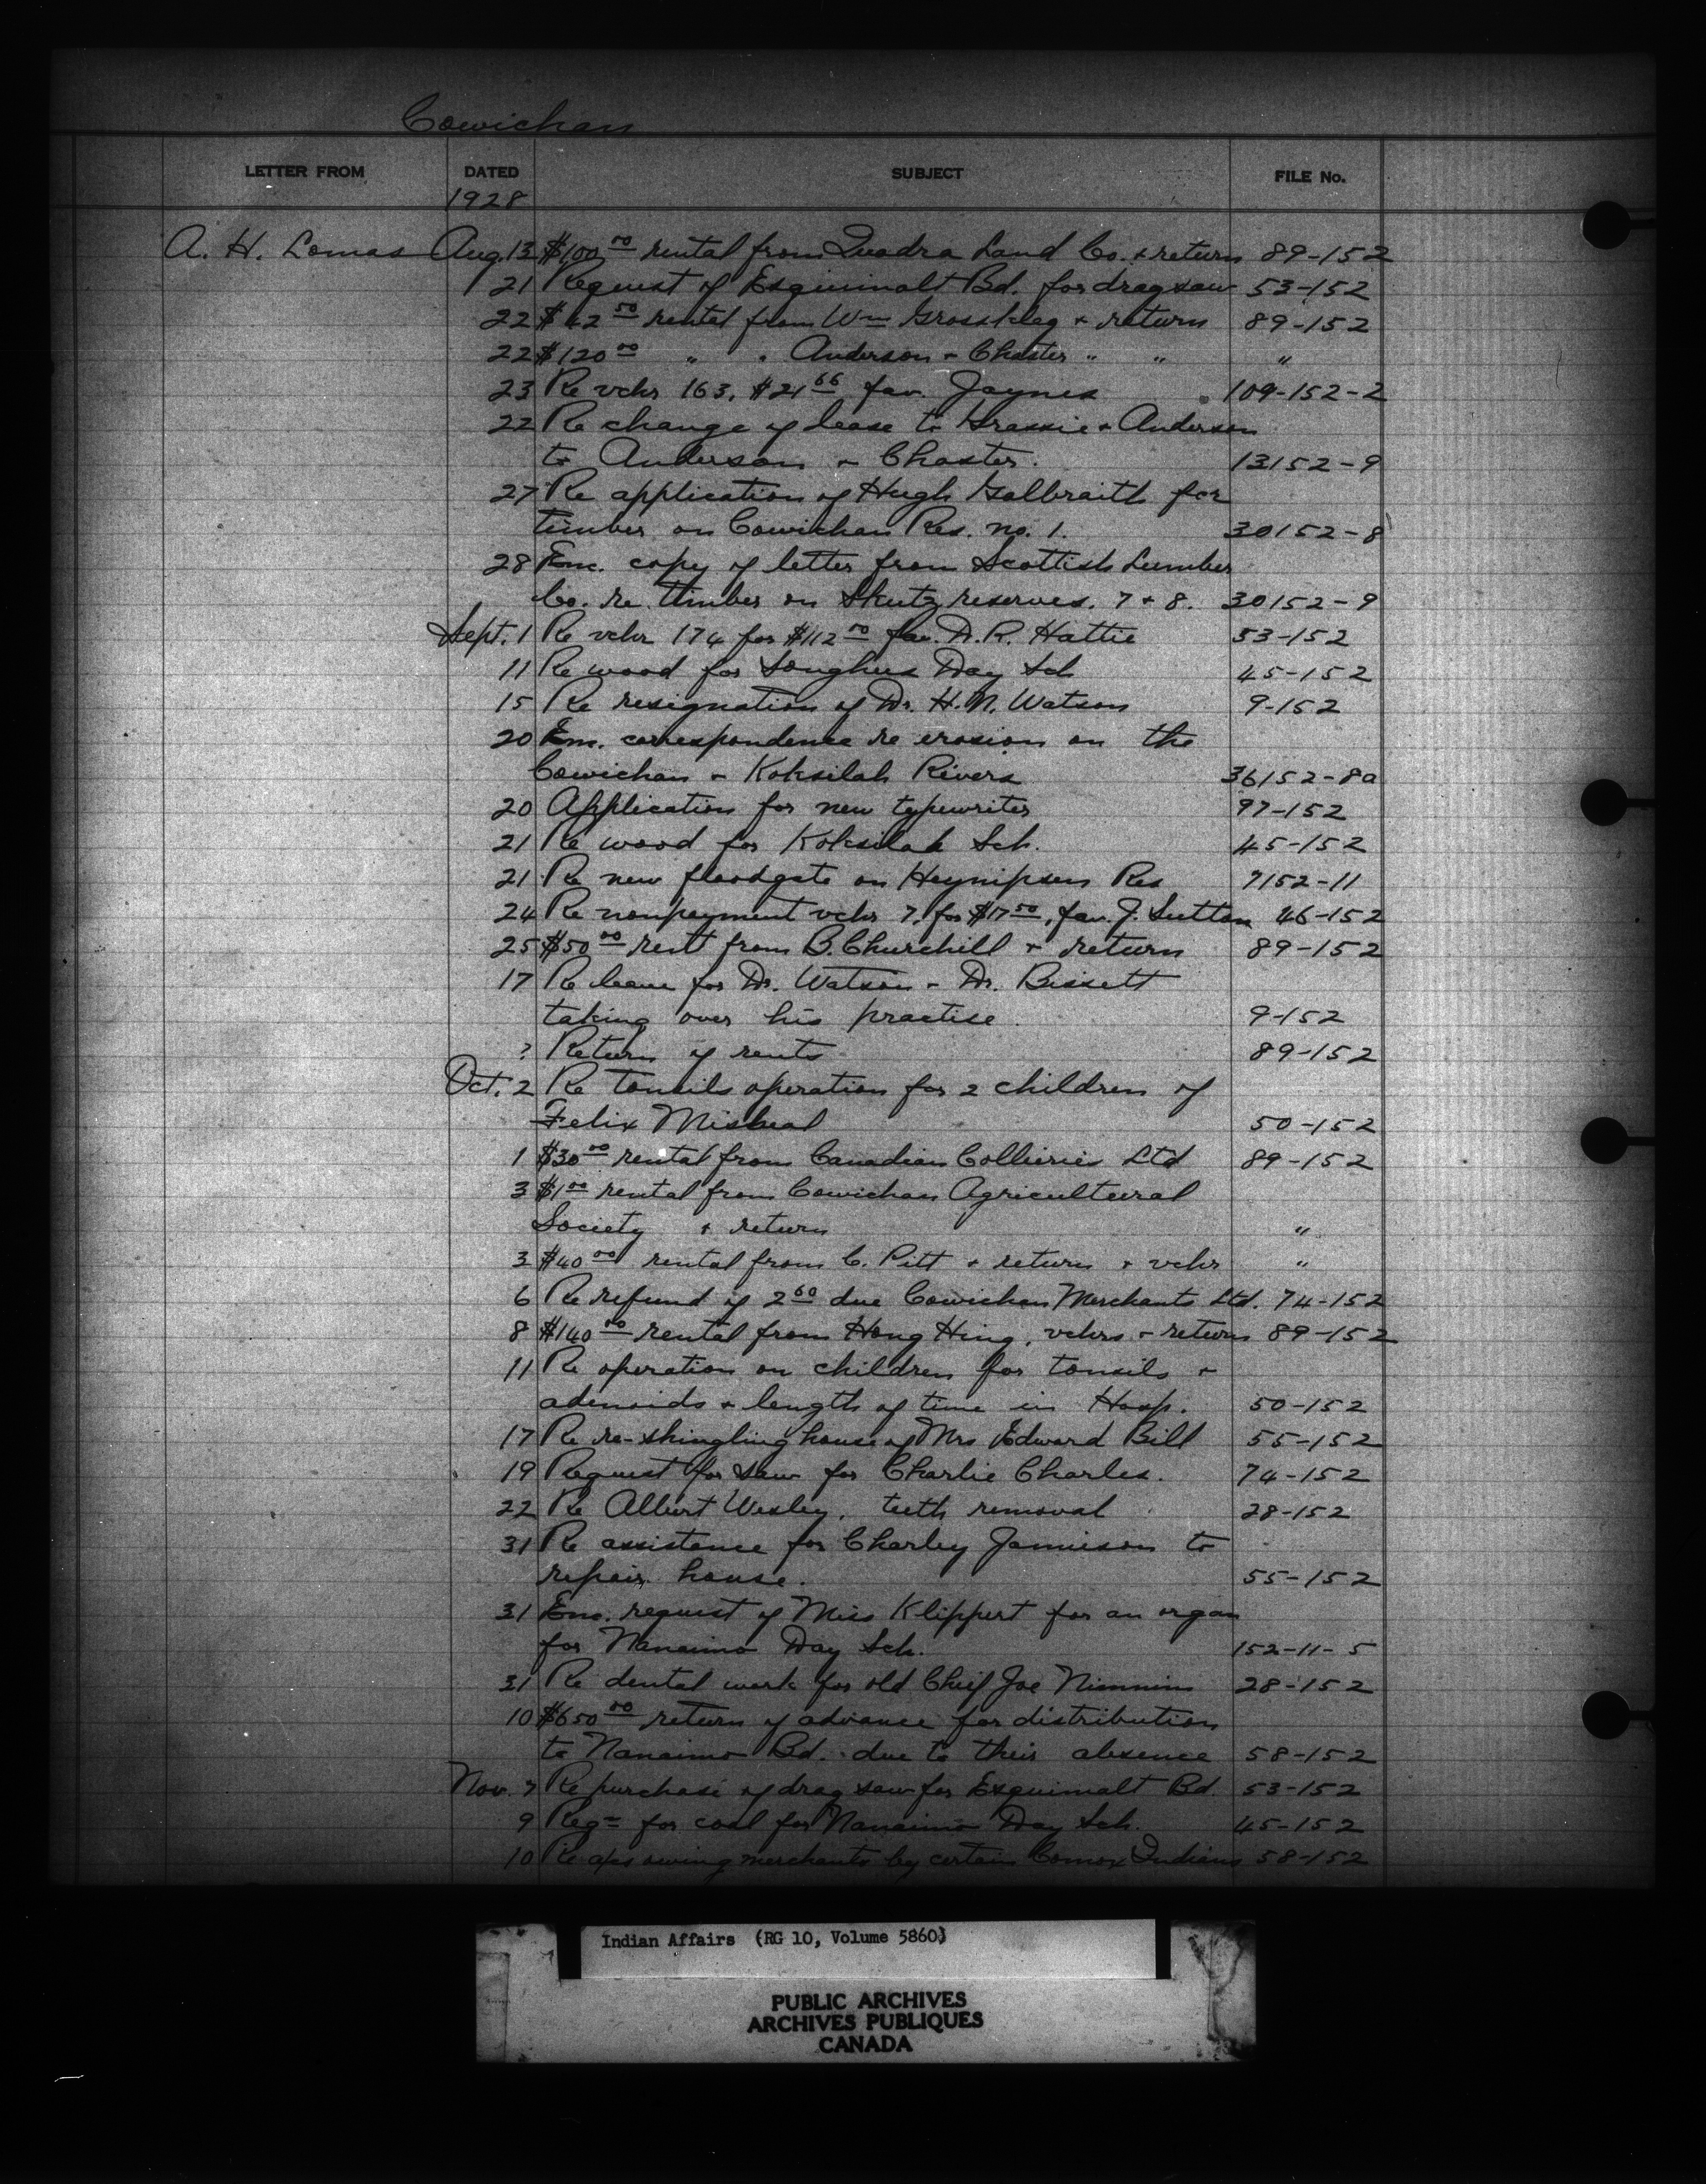 Cowichan
LETTER FROM DATED SUBJECT FILE No.
1928
A. H. Lomas Aug. 13 $100.00 rental from Quadra Land Co. + return 89-152
21 Request of Esquimalt Bd. for drag saw 53-152
22 $42.50 rental from Wm + return 89-152
22 $120.00 " " Anderson + Chaster " " "
23 Re vchr 163. $21.66 fav. Jaynes 109-152-2
22 Re change of lease to Grassie + Anderson
to Anderson + Chaster. 13152-9
27 Re application of Hugh Galbraith for
timber on Cowichan Res. no. 1. 30152-8
28 Enc. copy of letter from Scottish Lumber
Co. re timber on Skutz reserves. 7 + 8. 30152-9
Sept. 1 Re vchr 174 for $112.00 fav. D. R. Hattie 53-152
11 Re wood for Songhees Day Sch 45-152
15 Re resignation of Dr. H. N. Watson 9-152
20 Enc. correspondence re erosion on the
Cowichan + Koksilah Rivers 36152-8a
20 Application for new typewriter 97-152
21 Re wood for Koksilah Sch. 45-152
21 Re new floodgate on Res 7152-11
24 Re nonpayment vchr 7, for $17.50, fav. J. Sutton 46-152
25 $50.00 rent from B. Churchill + return 89-152
17 Re leave for Dr. Watson - Dr. Bissett
taking over his practise. 9-152
? Return of rents 89-152
Oct. 2 Re tonsils operation for 2 children of
Felix 50-152
1 $30.00 rental from Canadian Collieries Ltd 89-152
3 $1.00 rental from Cowichan Agricultural
Society + return "
3 $40.00 rental from C. Pitt + return + vchr "
6 Re refund of 2.60 due Cowichan Merchants Ltd. 74-152
8 $140.00 rental from Hong Hing, vchrs + return 89-152
11 Re operation on children for tonsils +
adenoids + length of time in Hosp. 50-152
17 Re re-shingling house of Mrs Edward Bill 55-152
19 Request for saw for Charlie Charles. 74-152
22 Re Albert Wesley, teeth removal 28-152
31 Re assistance for Charley Jamieson to
repair house. 55-152
31 Enc. request of Miss Klippert for an organ
for Nanaimo Day Sch. 152-11-5
31 Re dental work for old Chief Joe 28-152
10 $650.00 return of advance for distribution
to Nanaimo Bd. due to their absence 58-152
Nov. 7 Re purchase of drag saw for Esquimalt Bd. 53-152
9 Reqn for coal for Nanaimo Day Sch. 45-152
10 Re a/cs owing merchants by certain Comox Indians 58-152
Indian Affairs (RG 10, Volume 5860)
PUBLIC ARCHIVES
ARCHIVES PUBLIQUES
CANADA